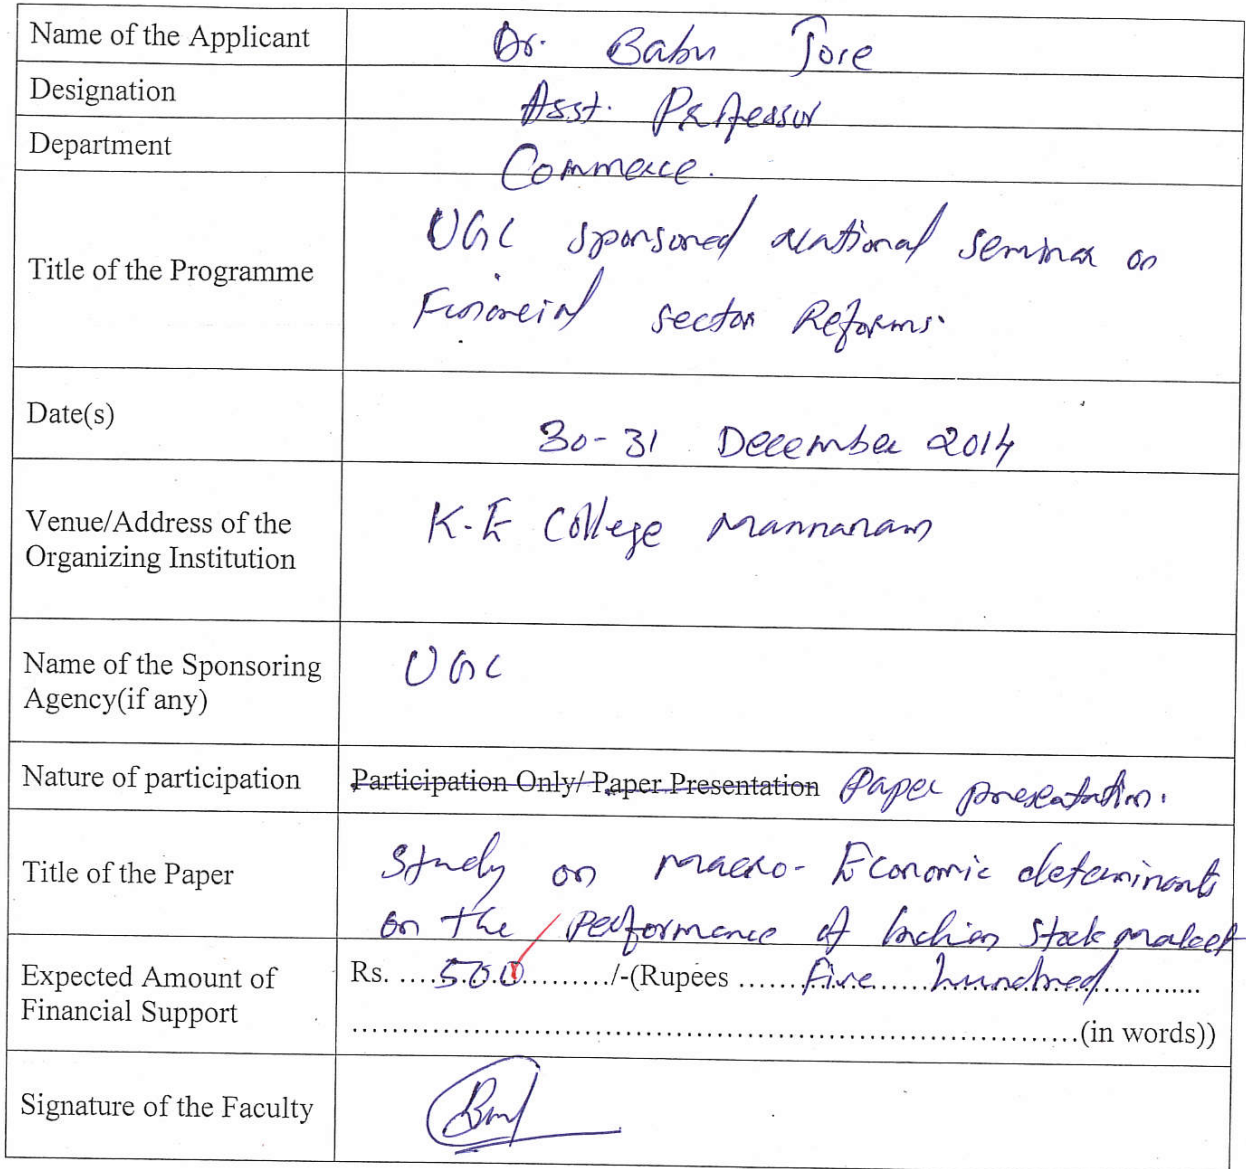 Name of the Applicant Dr. Babu Jose
Designation Asst. Professor
Department Commerce.
Title of the Programme UGC sponsored national seminar on
Financial sector Reforms.
Date(s) 30-31 December 2014
Venue/Address of the
Organizing Institution K.E College Mannanam
Name of the Sponsoring
Agency(if any) UGC
Nature of participation Participation Only/ Paper Presentation Paper presentation.
Title of the Paper Study on macro-Economic determinants
on the performance of Indian Stock market
Expected Amount of
Financial Support Rs. .....500.........../-(Rupees ......five.....hundred..........
..........................................................................(in words))
Signature of the Faculty